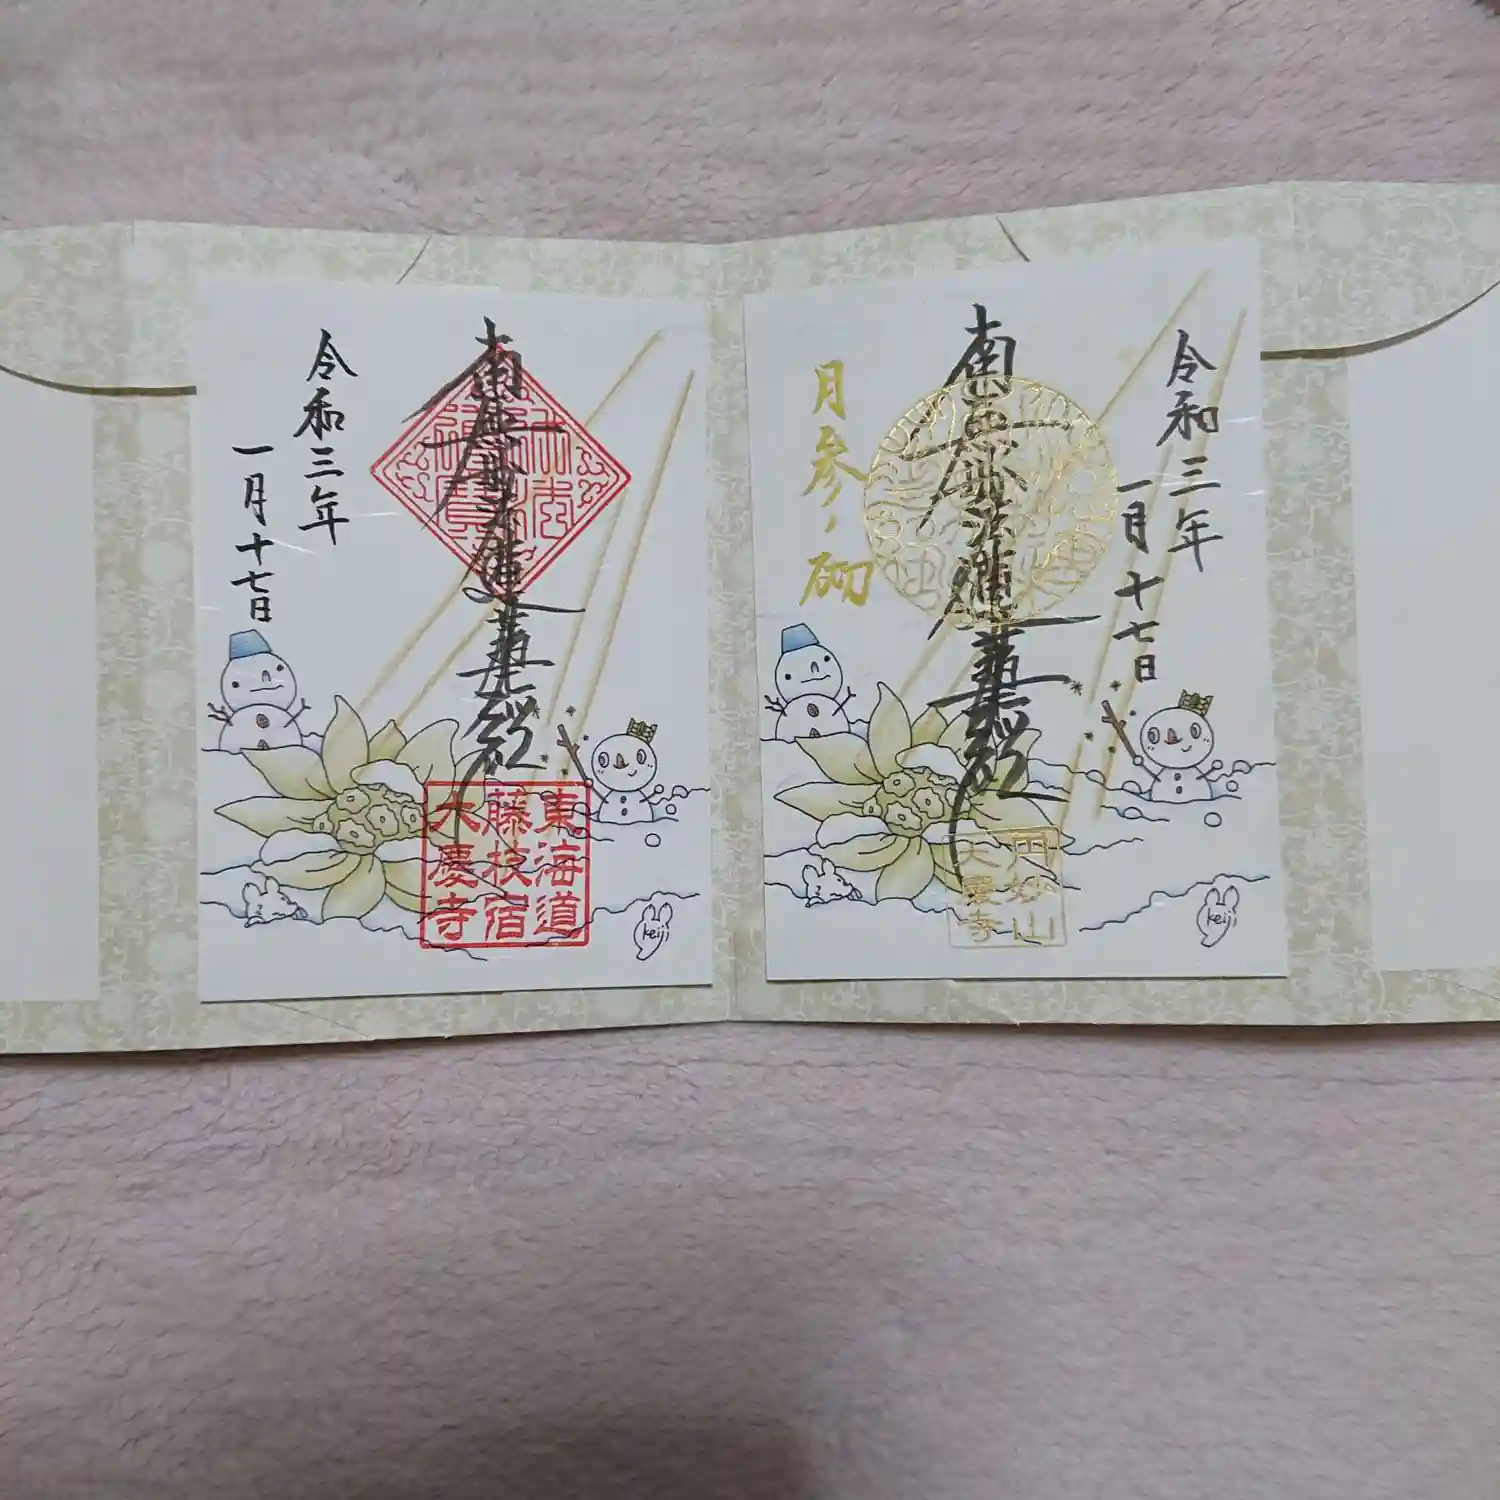 令和三年
一月十七日
月参り
南無妙法蓮華経
円妙山
大慶寺
南無妙法蓮華経
令和三年
一月十七日
東海道
藤枝宿
大慶寺
keiji
keiji